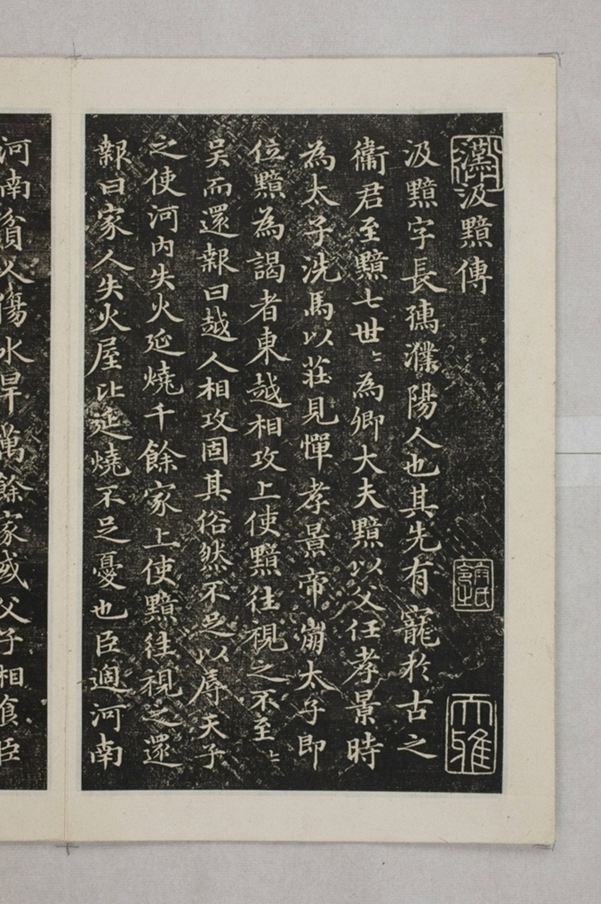 汲黯傳
汲黯字長孺濮陽人也其先有寵於古之
衞君至黯七世〻為卿大夫黯以父任孝景時
為太子洗馬以莊見憚孝景帝崩太子即
位黯為謁者東越相攻上使黯往視之不至〻
吳而還報曰越人相攻固其俗然不足以辱天子
之使河內失火延燒千餘家上使黯往視之還
報曰家人失火屋比延燒不足憂也臣過河南
河南貧人傷水旱萬餘家或父子相食臣